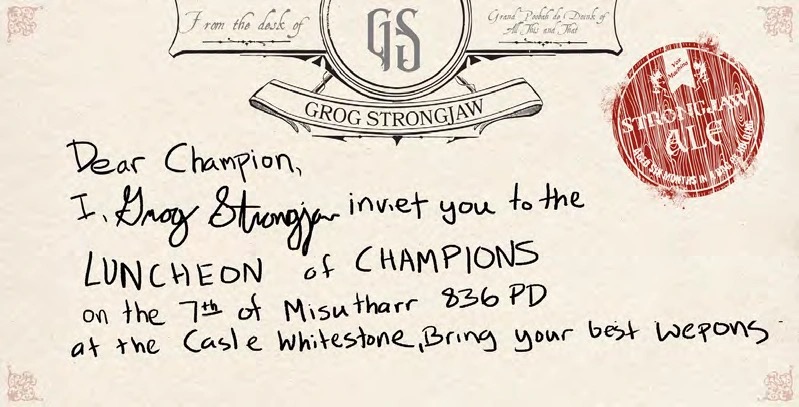 From the desk of
GS
Grand Poobah de Doink of
All This and That
GROG STRONGJAW
Vox Machina
STRONGJAW
ALE
Dear Champion,
I, Grog Strongjaw inviet you to the
LUNCHEON of CHAMPIONS
on the 7th of Misutharr 836 PD
at the Casle Whitestone, Bring your best wepons